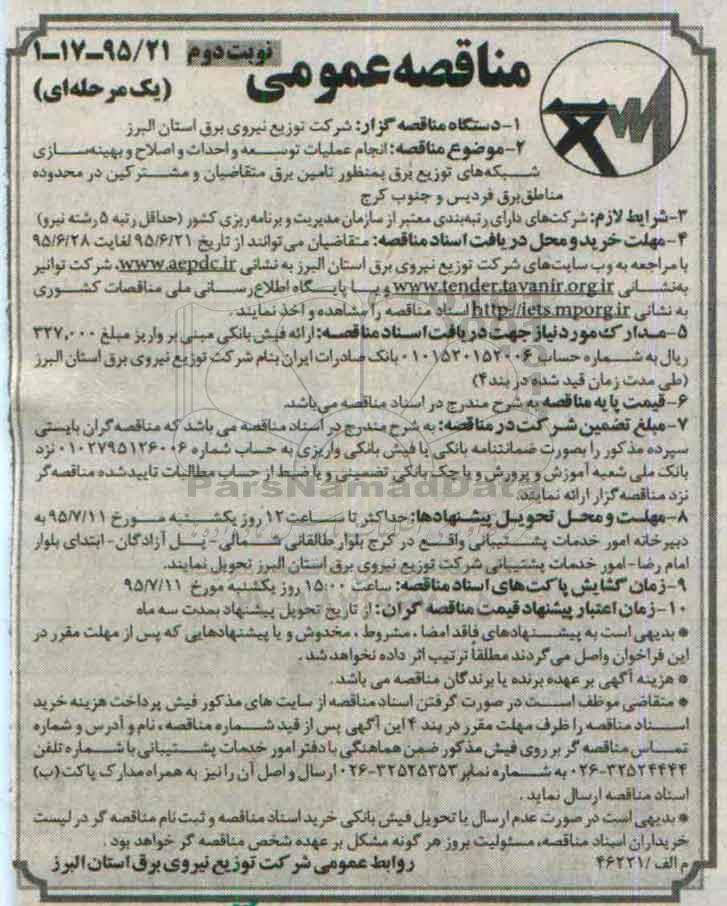 مناقصه عمومی
نوبت دوم
۹۵/۲۱-۱۷-۱
(یک مرحله‌ای)
۱-دستگاه مناقصه گزار: شرکت توزیع نیروی برق استان البرز
۲-موضوع مناقصه: انجام عملیات توسعه و احداث و اصلاح و بهینه‌سازی
شبکه‌های توزیع برق بمنظور تامین برق متقاضیان و مشترکین در محدوده
مناطق برق فردیس و جنوب کرج
۳-شرایط لازم: شرکت‌های دارای رتبه‌بندی معتبر از سازمان مدیریت و برنامه‌ریزی کشور (حداقل رتبه ۵ رشته نیرو)
۴-مهلت خرید و محل دریافت اسناد مناقصه: متقاضیان می‌توانند از تاریخ ۹۵/۶/۲۱ لغایت ۹۵/۶/۲۸
با مراجعه به وب سایت‌های شرکت توزیع نیروی برق استان البرز به نشانی www.aepdc.ir، شرکت توانیر
به‌نشانی www.tender.tavanir.org.ir و یا پایگاه اطلاع‌رسانی ملی مناقصات کشوری
به نشانی http://iets.mporg.ir اسناد مناقصه را مشاهده و اخذ نمایند.
۵-مدارک مورد نیاز جهت دریافت اسناد مناقصه: ارائه فیش بانکی مبنی بر واریز مبلغ ۳۲۷,۰۰۰
ریال به شماره حساب ۰۱۰۱۵۲۰۱۵۲۰۰۶ بانک صادرات ایران بنام شرکت توزیع نیروی برق استان البرز
(طی مدت زمان قید شده در بند۴)
۶-قیمت پایه مناقصه به شرح مندرج در اسناد مناقصه می‌باشد.
۷-مبلغ تضمین شرکت در مناقصه: به شرح مندرج در اسناد مناقصه می باشد که مناقصه‌گران بایستی
سپرده مذکور را بصورت ضمانتنامه بانکی یا فیش بانکی واریزی به حساب شماره ۰۱۰۲۷۹۵۱۲۶۰۰۶ نزد
بانک ملی شعبه آموزش و پرورش و یا چک بانکی تضمینی و یا ضبط از حساب مطالبات تاییدشده مناقصه‌گر
نزد مناقصه‌گزار ارائه نمایند.
ParsNamadData
۸-مهلت و محل تحویل پیشنهادها: حداکثر تا ساعت ۱۲ روز یکشنبه مورخ ۹۵/۷/۱۱ به
دبیرخانه امور خدمات پشتیبانی واقع در کرج بلوار طالقانی شمالی- پل آزادگان- ابتدای بلوار
امام رضا- امور خدمات پشتیبانی شرکت توزیع نیروی برق استان البرز تحویل نمایند.
۹-زمان گشایش پاکت‌های اسناد مناقصه: ساعت ۱۵:۰۰ روز یکشنبه مورخ ۹۵/۷/۱۱
۱۰-زمان اعتبار پیشنهاد قیمت مناقصه گران: از تاریخ تحویل پیشنهاد بمدت سه ماه
* بدیهی است به پیشنهادهای فاقد امضا، مشروط، مخدوش و یا پیشنهادهایی که پس از مهلت مقرر در
این فراخوان واصل می‌گردند مطلقاً ترتیب اثر داده نخواهد شد.
* هزینه آگهی بر عهده برنده یا برندگان مناقصه می باشد.
* متقاضی موظف است در صورت گرفتن اسناد مناقصه از سایت های مذکور فیش پرداخت هزینه خرید
اسناد مناقصه را ظرف مهلت مقرر در بند ۴ این آگهی پس از قید شماره مناقصه، نام و آدرس و شماره
تماس مناقصه گر بر روی فیش مذکور ضمن هماهنگی با دفتر امور خدمات پشتیبانی با شماره تلفن
۰۲۶-۳۲۵۲۴۴۴۴ به شماره نمابر ۰۲۶-۳۲۵۲۵۳۵۳ ارسال و اصل آن را نیز به همراه مدارک پاکت(ب)
اسناد مناقصه ارسال نماید.
* بدیهی است در صورت عدم ارسال یا تحویل فیش بانکی خرید اسناد مناقصه و ثبت نام مناقصه گر در لیست
خریداران اسناد مناقصه، مسئولیت بروز هر گونه مشکل بر عهده شخص مناقصه گر خواهد بود.
م الف /۴۶۲۲۱
روابط عمومی شرکت توزیع نیروی برق استان البرز